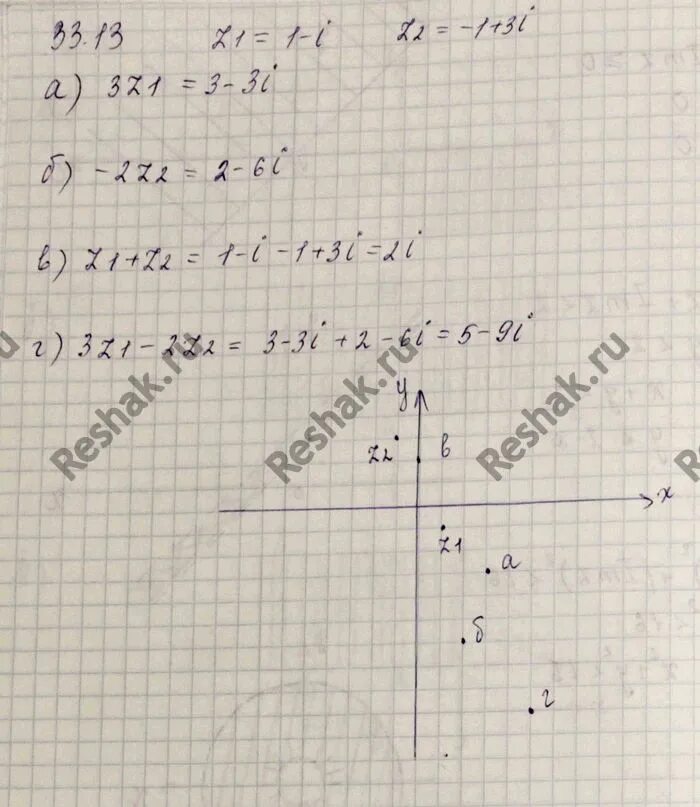 33.13 z1 = 1-i z2 = -1+3i
а) 3z1 = 3-3i
б) -2z2 = 2-6i
в) z1+z2 = 1-i-1+3i=2i
г) 3z1-2z2 = 3-3i+2-6i=5-9i
Reshak.ru Reshak.ru Reshak.ru
y
z2 в
x
z1
а
б
г
Reshak.ru Reshak.ru